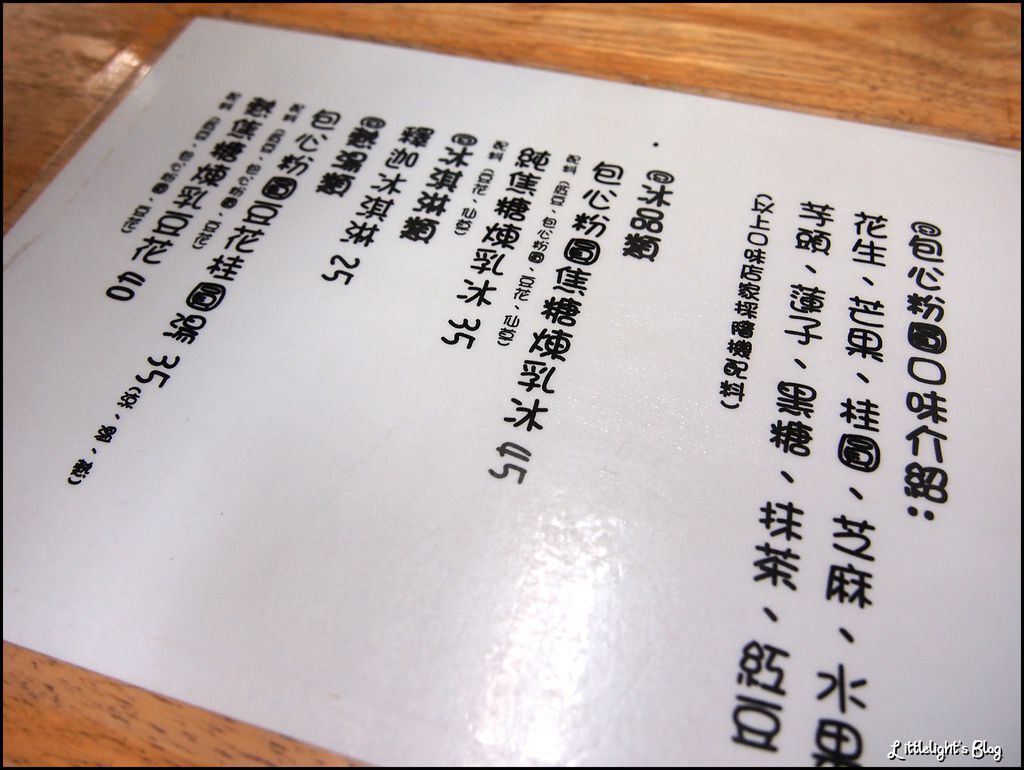 ◎包心粉圓口味介紹:
花生、芒果、桂圓、芝麻、水果
芋頭、蓮子、黑糖、抹茶、紅豆
(以上口味店家採隨機配料)
◎冰品類
包心粉圓焦糖煉乳冰 45
配料 豆、包心粉圓、豆花、仙草)
純焦糖煉乳冰 35
配料 (豆花、仙草)
◎冰淇淋類
釋迦冰淇淋 25
◎熱湯類
包心粉圓豆花桂圓湯 35
配料 豆、包心粉圓、豆花)
熱焦糖煉乳豆花 40
配料 豆、包心粉圓、豆花)
Littlelight's Blog